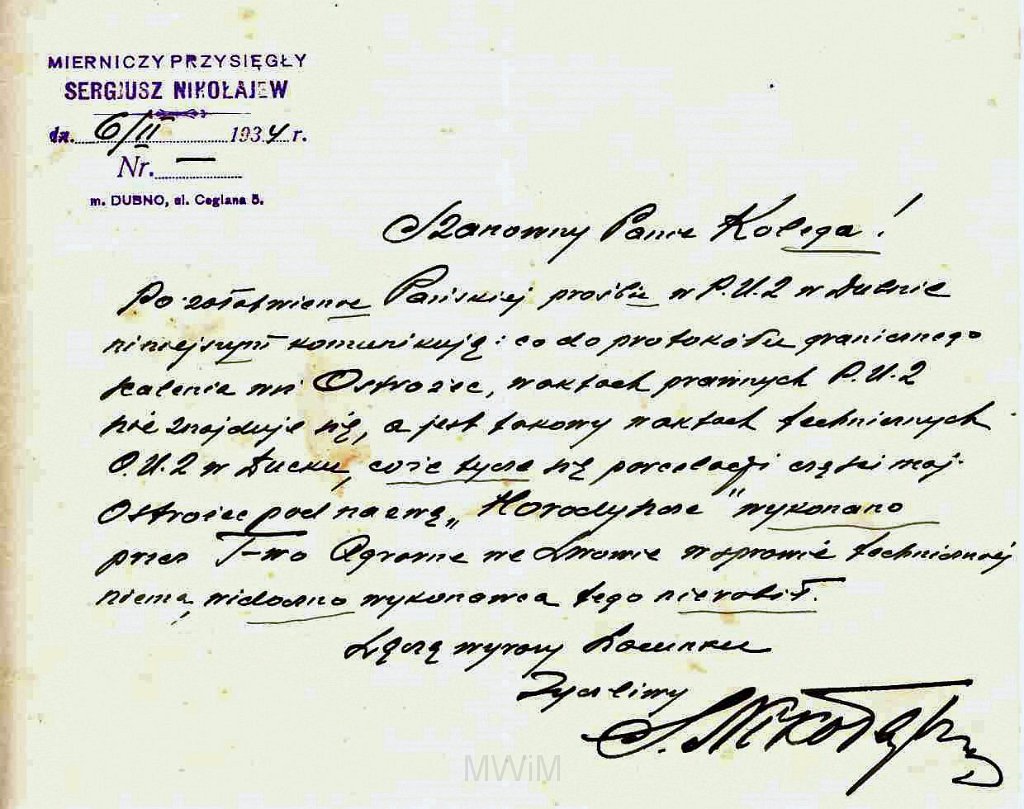 MIERNICZY PRZYSIĘGŁY
SERGJUSZ NIKOŁAJEW
dn. 6/II 1934 r.
Nr. —
m. DUBNO, ul. Ceglana 5.
Szanowny Panie Kolega!
Po załatwienie Pańskiej prośbie w P.U.Z w Dubnie
niniejszym komunikuję: co do protokółu granicznego
scalenia wsi Ostrożec, w aktach prawnych P.U.Z
nie znajduje się, a jest takowy w aktach technicznych
O.U.Z w Łucku, coże tycze się parcelacji części maj.
Ostrożec pod nazwą „Horodyhcze" wykonano
przez T-wo Agrarne we Lwowie w sprawie technicznej
niema, widoczno wykonawca tego nierobił.
Łączę wyrazy szacunku
Życzliwy
S. Nikołajew
MWiM